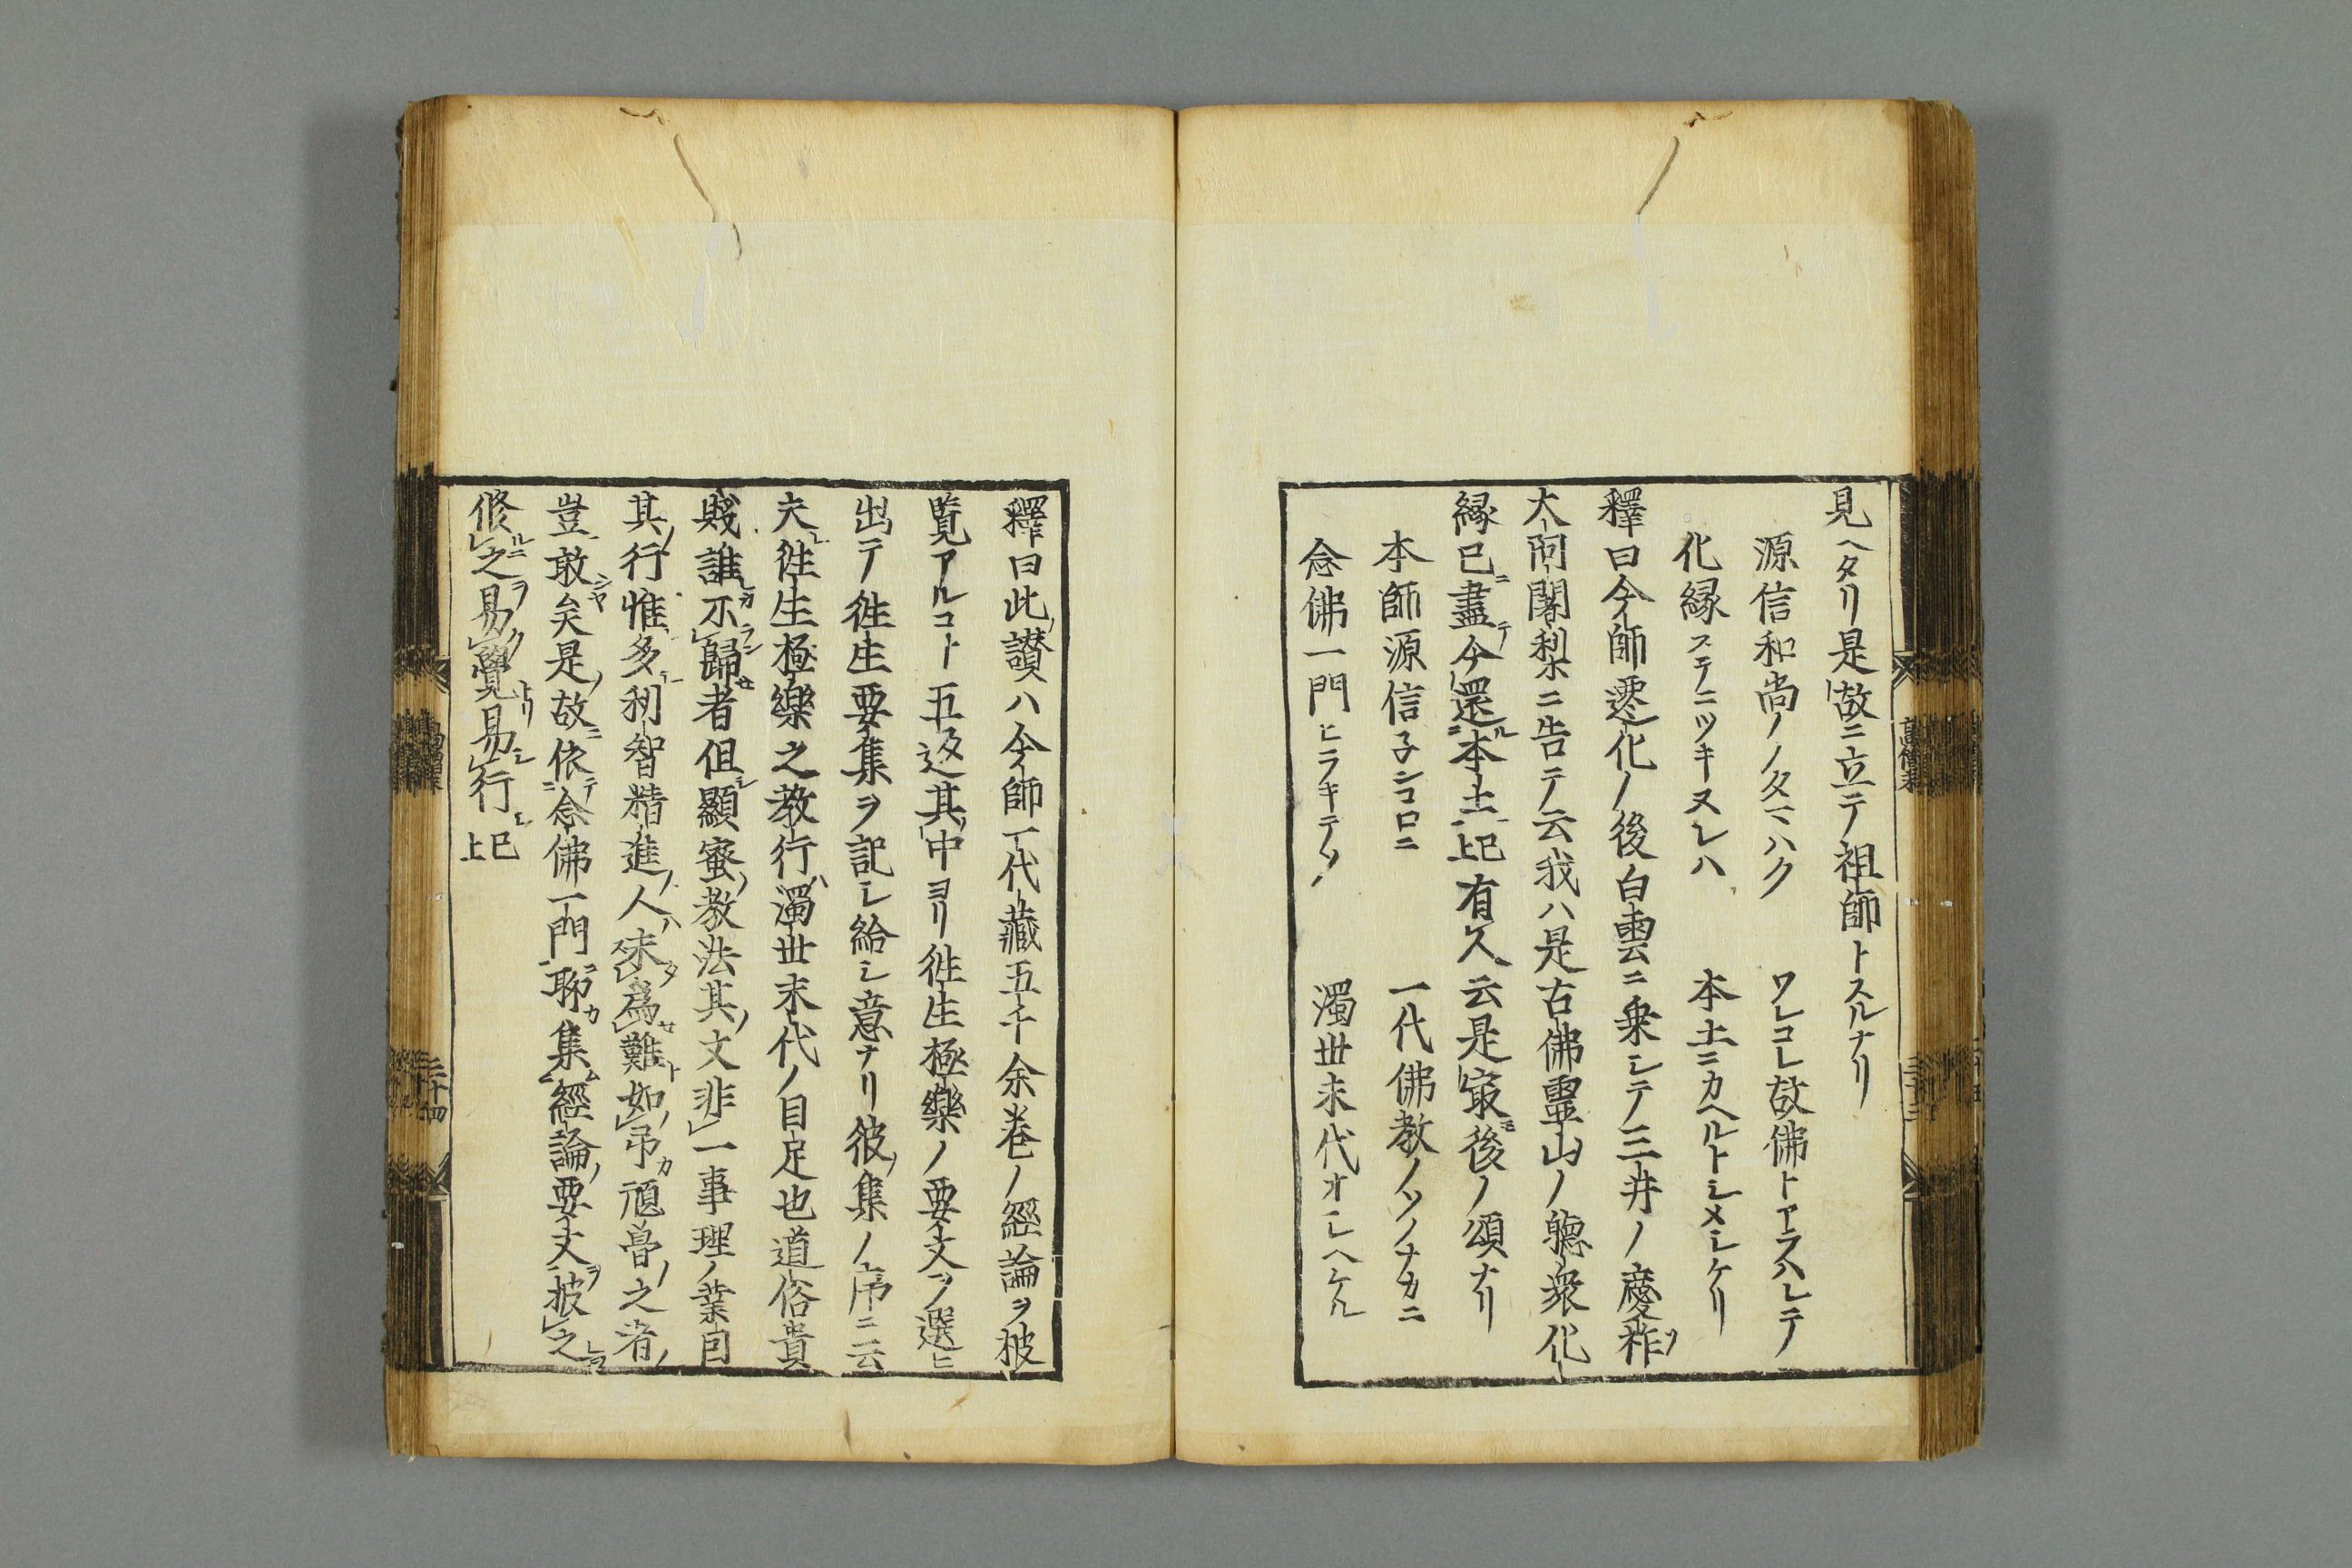 見ヘタリ是故ニ立テ祖師トスルナリ
源信和尚ノノタマハク　ワレコレ故佛トアラハレテ
化縁ステニツキヌレハ　本土ニカヘルトシメシケリ
釋曰今師遷化ノ後白雲ニ乗シテ三井ノ慶祚
大阿闍梨ニ告テ云我ハ是古佛霊山ノ聴衆化
縁已盡今還本土已上有人云是最後ノ頌ナリ
本師源信子ンコロニ　一代佛教ノソノナカニ
念佛一門ヒラキテソ　濁世末代オシヘケル
釋曰此讃ハ今師一代藏五千余巻ノ經論ヲ披
覧アルコト五返其中ヨリ徃生極樂ノ要文ヲ選ヒ
出テ徃生要集ヲ記シ給シ意ナリ彼集ノ序ニ云
夫徃生極樂之教行濁世末代ノ目足也道俗貴
賤誰不歸者但顯蜜教法其文非一事理ノ業因
其行惟多利智精進人未為難如予頑魯之者
豈敢矣是故依念佛一門聊集經論要文披之
修之易覺易行已上
高僧和
三十四